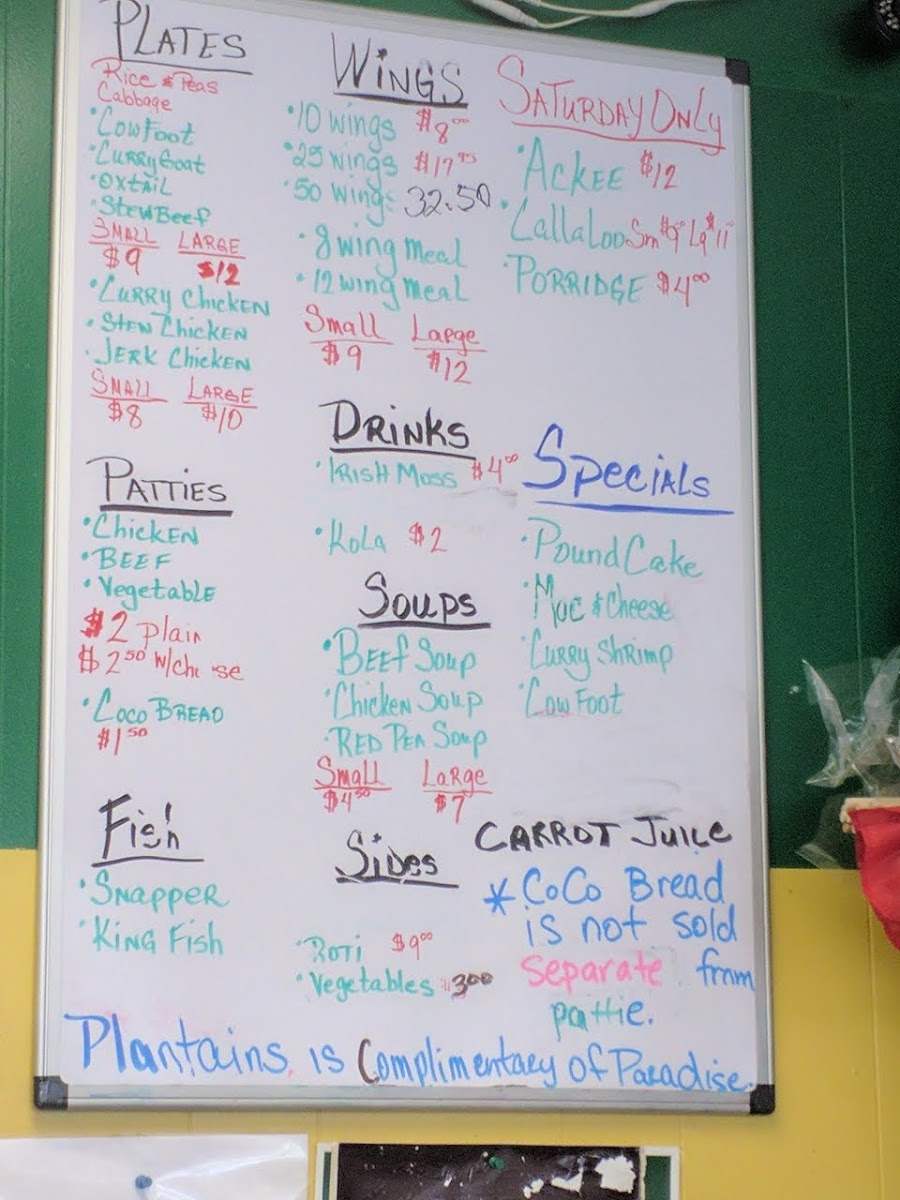 PLATES
Rice & Peas
Cabbage
• Cow Foot
• Curry Goat
• Oxtail
• Stew Beef
Small Large
$9 $12
• Curry Chicken
• Stew Chicken
• Jerk Chicken
Small Large
$8 $10
Patties
• Chicken
• Beef
• Vegetable
$2 plain
$2.50 w/che se
• Coco Bread
$1.50
Fish
• Snapper
• King Fish
Wings
• 10 wings $8.00
• 25 wings
• 50 wings 32.50
• 8 wing meal
• 12 wing meal
Small Large
$9 $12
Drinks
• Irish Moss $4.00
• Kola $2
Soups
• Beef Soup
• Chicken Soup
• Red Pea Soup
Small Large
$4.50 $7
Sides
• Roti $9.00
• Vegetables 3.00
Saturday Only
• Ackee $12
• Callaloo Sm $9 Lg $11
• Porridge $4.00
Specials
• Pound Cake
• Mac & Cheese
• Curry Shrimp
• Cow Foot
Carrot Juice
* CoCo Bread
is not sold
separate from
pattie.
Plantains is Complimentary of Paradise.